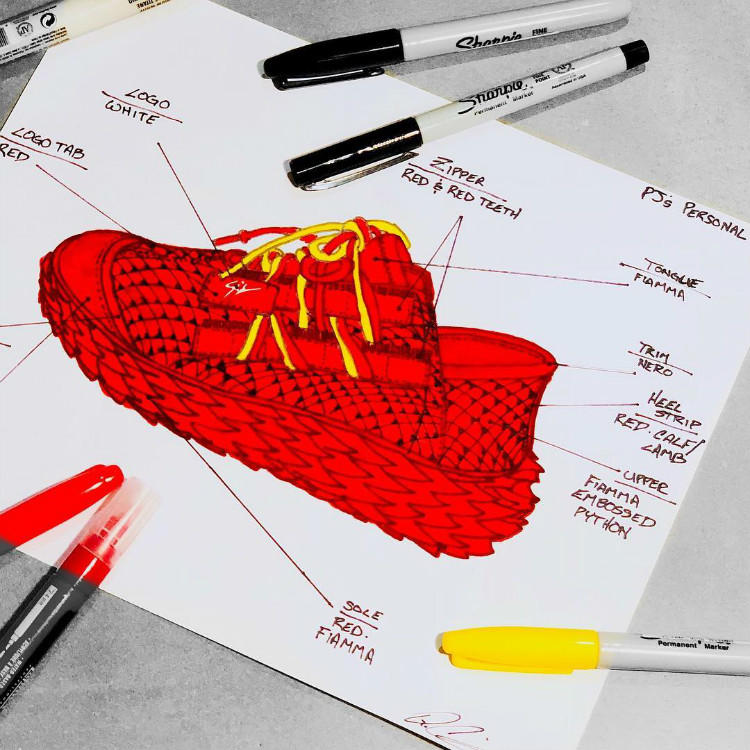 LOGO
WHITE
LOGO TAB
RED
ZIPPER
RED & RED TEETH
PJ's PERSONAL
TONGUE
FIAMMA
TRIM
NERO
HEEL
STRIP
RED. CALF/
LAMB
UPPER
FIAMMA
EMBOSSED
PYTHON
SOLE
RED.
FIAMMA
Sharpie FINE
Sharpie
Permanent Marker
Permanent Marker